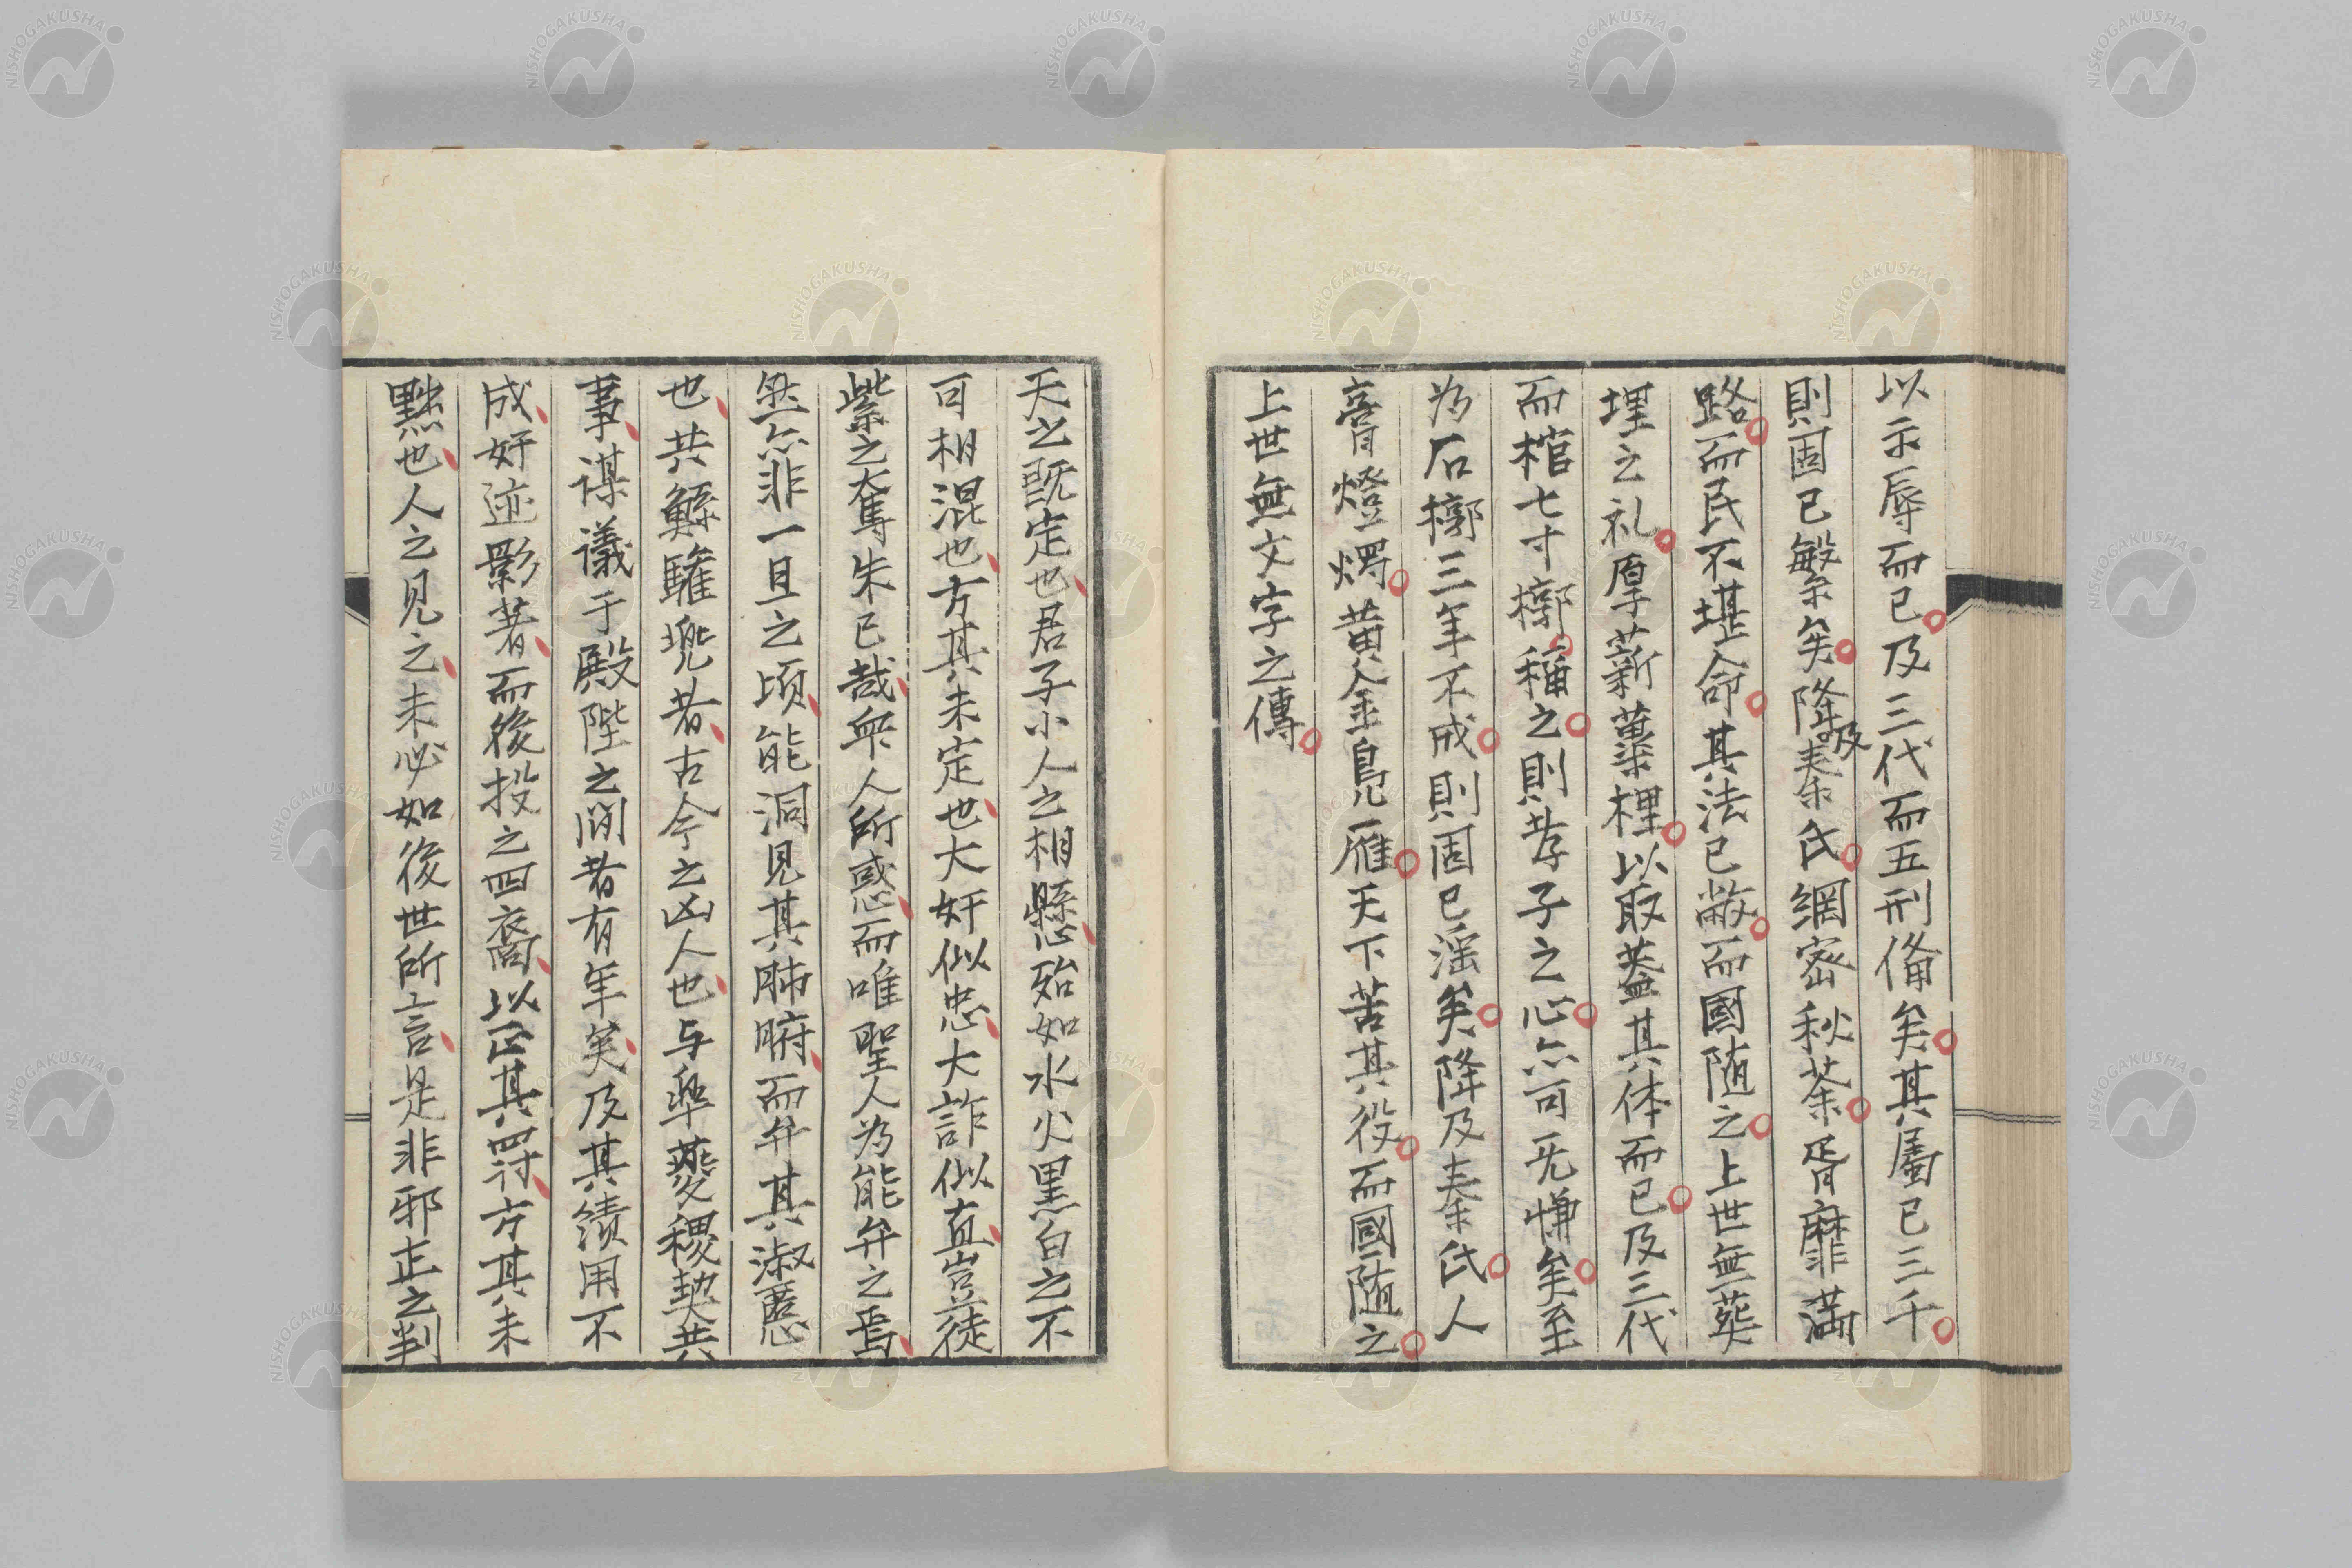 以示辱而已及三代而五刑備矣其属已三千
則固已繁矣降及秦氏網密秋荼胥靡満
路而民不堪命其法已敝而國随之上世無葬
埋之礼厚薪蘽梩以取蓋其体而已及三代
而棺七寸槨稱之則孝子之心亦可无慊矣至
為石槨三年不成則固已滛矣降及秦氏人
膏燈燭黄金鳧雁天下苦其役而國随之
上世無文字之傳
天之既定也君子小人之相懸殆如水火黒白之不
可相混也方其未定也大奸似忠大詐似直豈徒
紫之奪朱已哉衆人所惑而唯聖人為能弁之焉
然亦非一旦之頃能洞見其肺腑而弁其淑慝
也共鯀驩兜者古今之凶人也与皐夔稷契共
事謀議于殿陛之間者有年矣及其績用不
成奸迹影著而後投之四裔以正其罸方其未
黜也人之見之未必如後世所言是非邪正之判
NISHOGAKUSHA